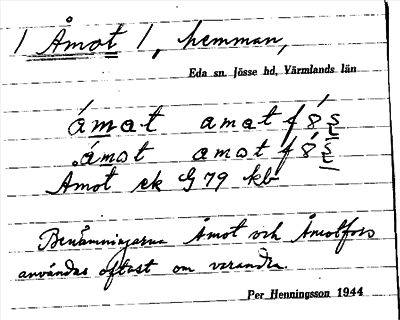 / Åmot /, hemman,
Eda sn. Jösse hd, Värmlands län
åmat amat f
åmot amot f
Åmot ek G 79 kb
Benämningarna Åmot och Åmotfors
användas oftast om varandra.
Per Henningsson 1944